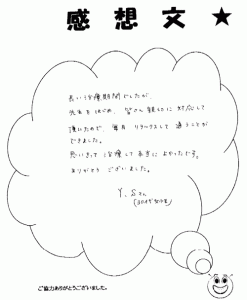 感想文★
長い治療期間でしたが、
先生をはじめ、皆さん親切に対応して
頂いたので、毎月リラックスして通うことが
できました。
思いきって治療して本当によかったです。
ありがとうございました。
Y.Sさん
ご協力ありがとうございました。